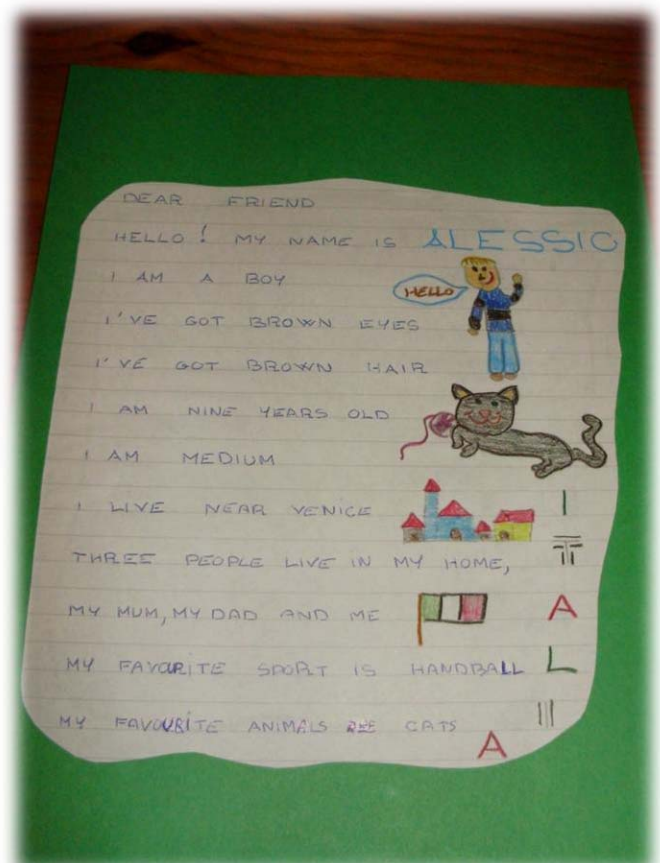 DEAR FRIEND
HELLO! MY NAME IS ALESSIO
I AM A BOY
HELLO
I'VE GOT BROWN EYES
I'VE GOT BROWN HAIR
I AM NINE YEARS OLD
I AM MEDIUM
I LIVE NEAR VENICE
THREE PEOPLE LIVE IN MY HOME,
MY MUM, MY DAD AND ME
MY FAVOURITE SPORT IS HANDBALL
MY FAVOURITE ANIMALS ARE CATS
I
T
A
L
I
A